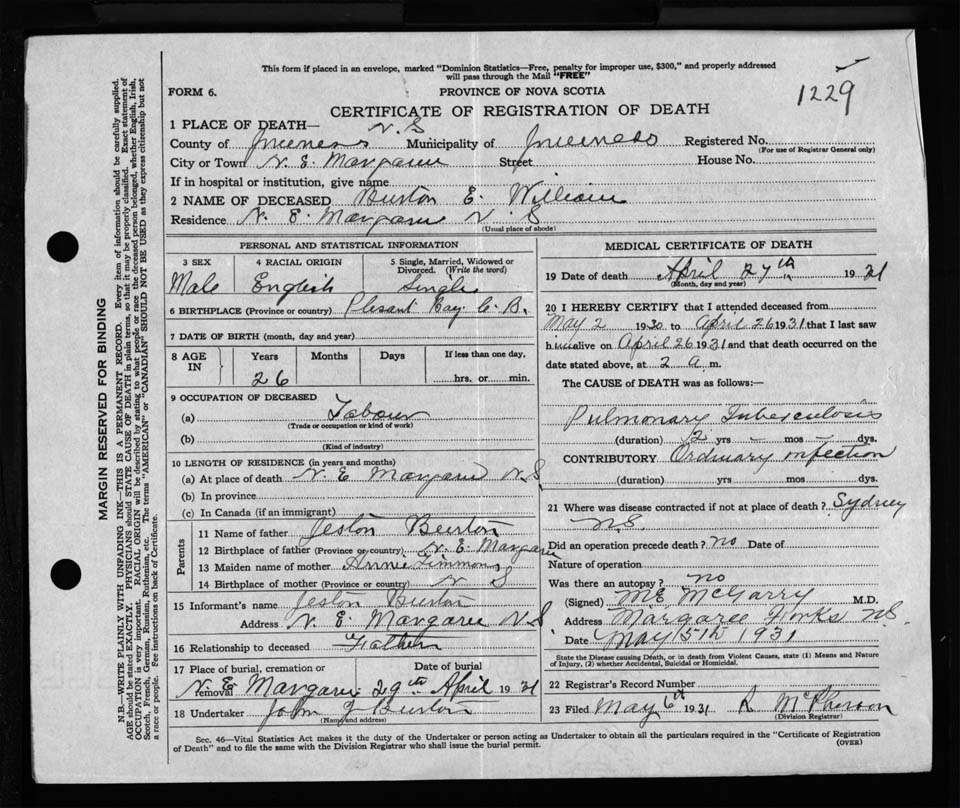 This form if placed in an envelope, marked "Dominion Statistics—Free, penalty for improper use, $300," and properly addressed
will pass through the Mail "FREE"
1229
FORM 6. PROVINCE OF NOVA SCOTIA
CERTIFICATE OF REGISTRATION OF DEATH
1 PLACE OF DEATH— N.S
County of Inverness Municipality of Inverness Registered No.
(For use of Registrar General only)
City or Town N. E. Margaree Street House No.
If in hospital or institution, give name
2 NAME OF DECEASED Burton E. William
Residence N. E. Margaree N. S
(Usual place of abode)
PERSONAL AND STATISTICAL INFORMATION
3 SEX 4 RACIAL ORIGIN 5 Single, Married, Widowed or
Divorced. (Write the word)
Male English Single
6 BIRTHPLACE (Province or country) Plesant Bay C. B.
7 DATE OF BIRTH (month, day and year)
8 AGE IN Years Months Days If less than one day,
26 hrs. or min.
9 OCCUPATION OF DECEASED
(a) Labour
(Trade or occupation or kind of work)
(b)
(Kind of industry)
10 LENGTH OF RESIDENCE (in years and months)
(a) At place of death N. E Margaree N. S.
(b) In province
(c) In Canada (if an immigrant)
Parents
11 Name of father Jeston Burton
12 Birthplace of father (Province or country) N. E. Margaree
13 Maiden name of mother Annie Timmons
14 Birthplace of mother (Province or country) N S
15 Informant's name Jeston Burton
Address N. E. Margaree N. S
16 Relationship to deceased Father
17 Place of burial, cremation or removal Date of burial
N. E Margaree 29th April 1931
18 Undertaker John J Burton
(Name and address)
MEDICAL CERTIFICATE OF DEATH
19 Date of death April 27th 1931
(Month, day and year)
20 I HEREBY CERTIFY that I attended deceased from
May 2 1930 to April 26 1931 that I last saw
him alive on April 26 1931 and that death occurred on the
date stated above, at 2 a. m.
The CAUSE of DEATH was as follows:—
Pulmonary Tuberculosis
(duration) 2 yrs – mos – dys.
CONTRIBUTORY Ordinary infection
(duration) yrs mos dys.
21 Where was disease contracted if not at place of death? Sydney
N.S
Did an operation precede death? no Date of
Nature of operation
Was there an autopsy? no
(Signed) ME McGarry M.D.
Address Margaree Forks N.S.
Date May 5th 1931
State the Disease causing Death, or in death from Violent Causes, state (1) Means and Nature
of Injury, (2) whether Accidental, Suicidal or Homicidal.
22 Registrar's Record Number
23 Filed May 6th 1931 R McPherson
(Division Registrar)
Sec. 46—Vital Statistics Act makes it the duty of the Undertaker or person acting as Undertaker to obtain all the particulars required in the "Certificate of Registration
of Death" and to file the same with the Division Registrar who shall issue the burial permit.
(OVER)
MARGIN RESERVED FOR BINDING
N.B.—WRITE PLAINLY WITH UNFADING INK—THIS IS A PERMANENT RECORD. Every item of information should be carefully supplied.
AGE should be stated EXACTLY. PHYSICIANS should STATE CAUSE OF DEATH in plain terms, so that it may be properly classified. Exact statement of
OCCUPATION is very important. RACIAL ORIGIN will be described by stating to what people or race the deceased person belonged, whether English, Irish,
Scotch, French, German, Russian, Ruthenian, etc. The terms "AMERICAN" or "CANADIAN" SHOULD NOT BE USED as they express citizenship but not
a race or people. See instructions on back of Certificate.